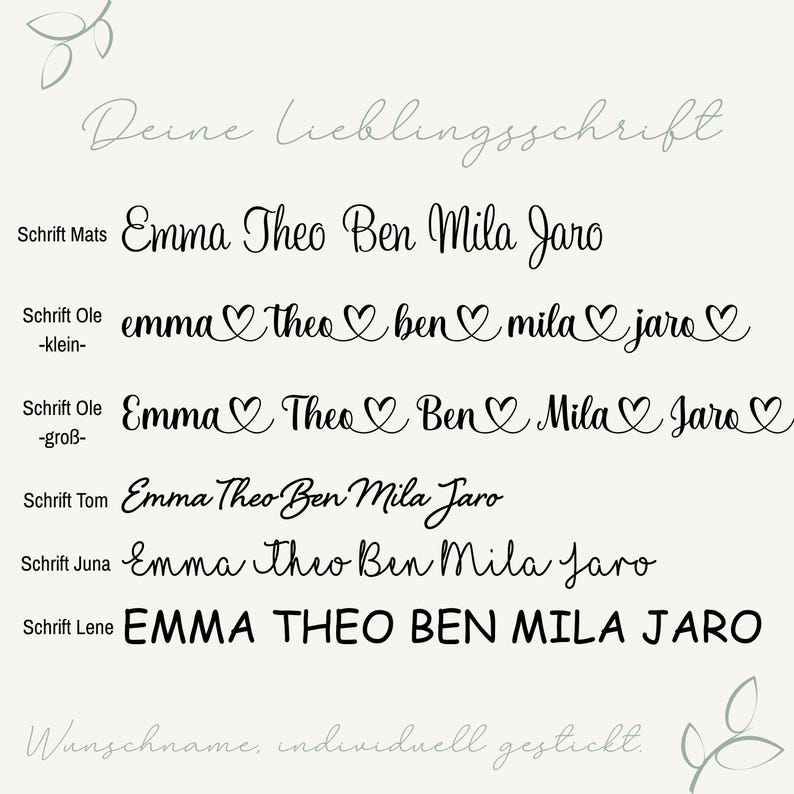 Deine Lieblingsschrift
Schrift Mats Emma Theo Ben Mila Jaro
Schrift Ole
-klein- emma theo ben mila jaro
Schrift Ole
-groß- Emma Theo Ben Mila Jaro
Schrift Tom Emma Theo Ben Mila Jaro
Schrift Juna Emma Theo Ben Mila Jaro
Schrift Lene EMMA THEO BEN MILA JARO
Wunschname, individuell gestickt.